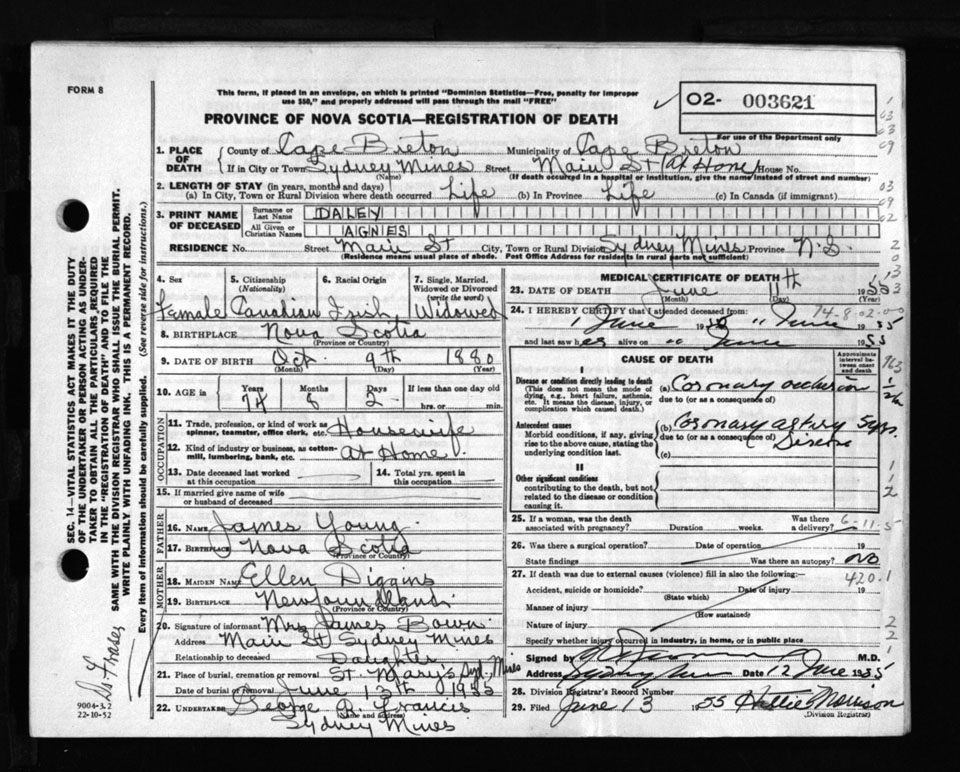 FORM 8
This form, if placed in an envelope, on which is printed "Dominion Statistics—Free, penalty for improper
use $50," and properly addressed will pass through the mail "FREE"
O2- 003621
For use of the Department only
PROVINCE OF NOVA SCOTIA—REGISTRATION OF DEATH
1. PLACE OF DEATH
County of Cape Breton Municipality of Cape Breton
If in City or Town Sydney Mines Street Main St (at Home) House No.
(Name) (If death occurred in a hospital or institution, give the name instead of street and number)
2. LENGTH OF STAY (in years, months and days)
(a) In City, Town or Rural Division where death occurred Life (b) In Province Life (c) In Canada (if immigrant)
3. PRINT NAME OF DECEASED
Surname or Last Name DALEY
All Given or Christian Names AGNES
RESIDENCE No. Street Main St City, Town or Rural Division Sydney Mines Province N.S.
(Residence means usual place of abode. Post Office Address for residents in rural parts not sufficient)
4. Sex 5. Citizenship (Nationality) 6. Racial Origin 7. Single, Married, Widowed or Divorced (write the word)
Female Canadian Irish Widowed
8. BIRTHPLACE Nova Scotia
(Province or Country)
9. DATE OF BIRTH Oct. 9th 1880
(Month) (Day) (Year)
10. AGE in Years Months Days If less than one day old
74 8 2 hrs. or min.
OCCUPATION
11. Trade, profession, or kind of work as spinner, teamster, office clerk, etc. Housewife
12. Kind of industry or business, as cotton-mill, lumbering, bank, etc. At Home
13. Date deceased last worked at this occupation
14. Total yrs. spent in this occupation
15. If married give name of wife or husband of deceased
FATHER
16. NAME James Young
17. BIRTHPLACE Nova Scotia
(Province or Country)
MOTHER
18. MAIDEN NAME Ellen Diggins
19. BIRTHPLACE Newfoundland
(Province or Country)
20. Signature of informant Mrs James Bown
Address Main St Sydney Mines
Relationship to deceased Daughter
21. Place of burial, cremation or removal St. Mary's Syd. Mines
Date of burial or removal June 13th 1955
22. UNDERTAKER George B. Francis
(Name and address)
Sydney Mines
MEDICAL CERTIFICATE OF DEATH
23. DATE OF DEATH June 11th 1955
(Month) (Day) (Year)
24. I HEREBY CERTIFY that I attended deceased from:
14-8-02-00
1 June 19 " June 1955
and last saw her alive on " June 1955
CAUSE OF DEATH
Approximate interval between onset and death
I
Disease or condition directly leading to death
(This does not mean the mode of dying, e.g., heart failure, asthenia, etc. It means the disease, injury, or complication which caused death.)
(a) Coronary occlusion
due to (or as a consequence of)
Antecedent causes
Morbid conditions, if any, giving rise to the above cause, stating the underlying condition last.
(b) Coronary artery Disease 5 yrs.
due to (or as a consequence of)
(c)
II
Other significant conditions
contributing to the death, but not related to the disease or condition causing it.
25. If a woman, was the death associated with pregnancy? Duration weeks. Was there a delivery? 6-11-5
26. Was there a surgical operation? Date of operation 19
State findings Was there an autopsy? No
27. If death was due to external causes (violence) fill in also the following:— 420.1
Accident, suicide or homicide? Date of injury 19
(State which)
Manner of injury
(How sustained)
Nature of injury
Specify whether injury occurred in industry, in home, or in public place
Signed by M.D.
Address Sydney Mines Date 12 June 1955
28. Division Registrar's Record Number
29. Filed June 13 1955 Hattie Morrison
(Division Registrar)
SEC. 14—VITAL STATISTICS ACT MAKES IT THE DUTY
OF THE UNDERTAKER OR PERSON ACTING AS UNDER-
TAKER TO OBTAIN ALL THE PARTICULARS REQUIRED
IN THE "REGISTRATION OF DEATH" AND TO FILE THE
SAME WITH THE DIVISION REGISTRAR WHO SHALL ISSUE THE BURIAL PERMIT.
WRITE PLAINLY WITH UNFADING INK. THIS IS A PERMANENT RECORD.
Every item of information should be carefully supplied. (See reverse side for instructions.)
Fraser
9004-3.2
22-10-52